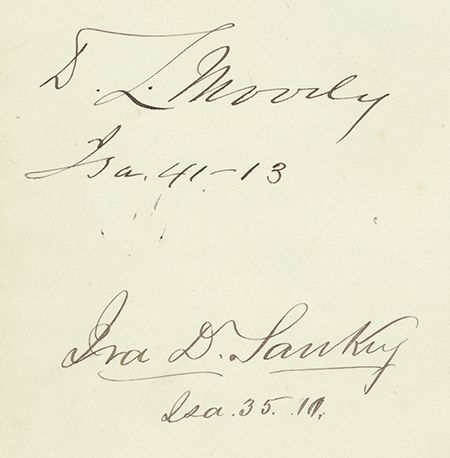 D. L. Moody
Isa. 41-13
Ira D. Sankey
Isa. 35. 10.